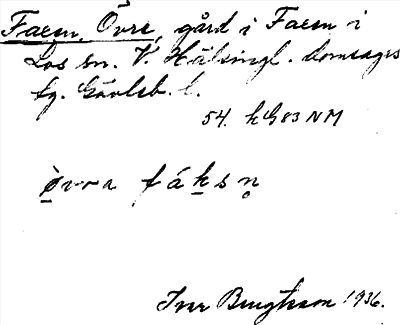 Faxen, Övre, gård i Faxen i
Los sn. V. Hälsingl. domsagas
tg. Gävleb. l.
54. hG 83 NM
övra fáksn̥
Ivar Bengtsson 1936.